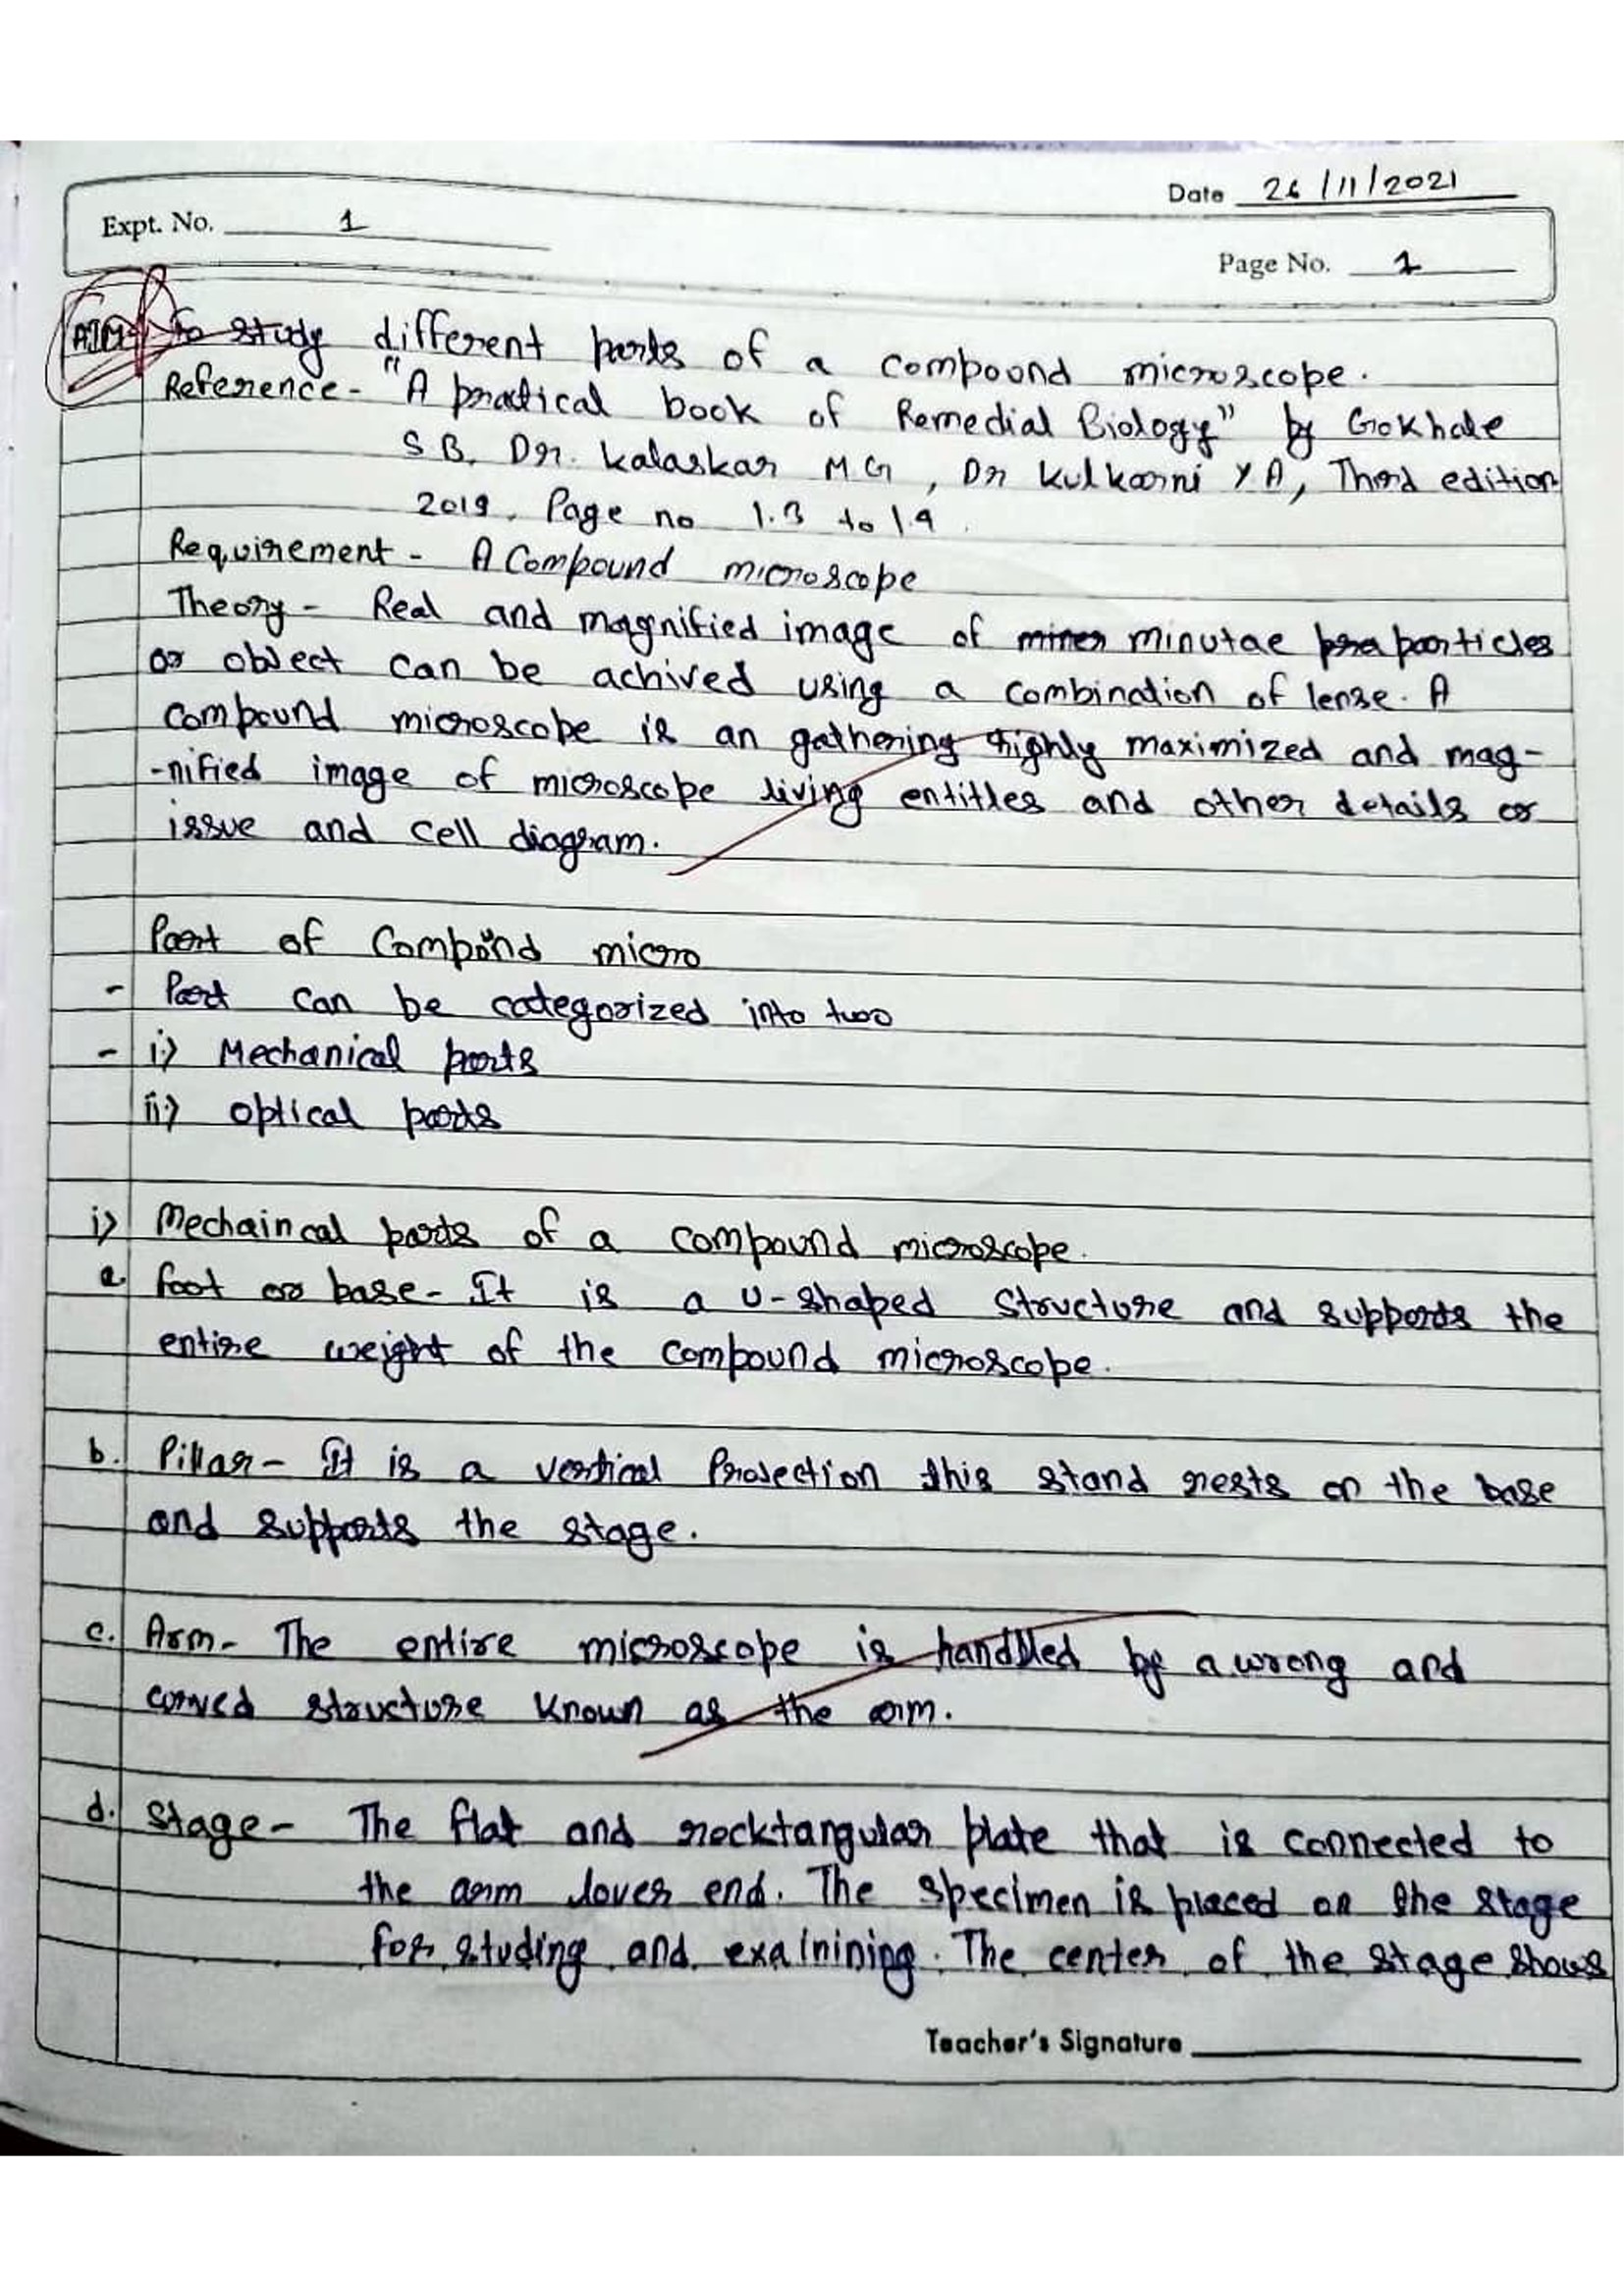 Date 26/11/2021
Expt. No. 1
Page No. 1
AIM- To study different parts of a compound microscope.
Reference- "A practical book of Remedial Biology" by Gokhale
S B, Dr. Kalaskar M G, Dr Kulkarni Y A, Third edition
2019, Page no 1.3 to 1.9.
Requirement - A Compound microscope
Theory - Real and magnified image of miner minutae pra particles
or object can be achived using a combination of lense. A
compound microscope is an gathering highly maximized and mag-
-nified image of microscope living entitles and other details or
issue and cell diagram.
Part of Compound micro
- Part can be categorized into two
- i) Mechanical parts
ii) optical parts
i) Mechaincal parts of a compound microscope.
a. foot or base- It is a U-shaped structure and supports the
entire weight of the compound microscope.
b. Pillar- It is a vertical Projection this stand rests on the base
and supports the stage.
c. Arm- The entire microscope is handled by a wrong and
curved structure known as the arm.
d. Stage- The flat and rocktangular plate that is connected to
the arm lover end. The specimen is placed on the stage
for studing and exainining. The center of the stage shows
Teacher's Signature